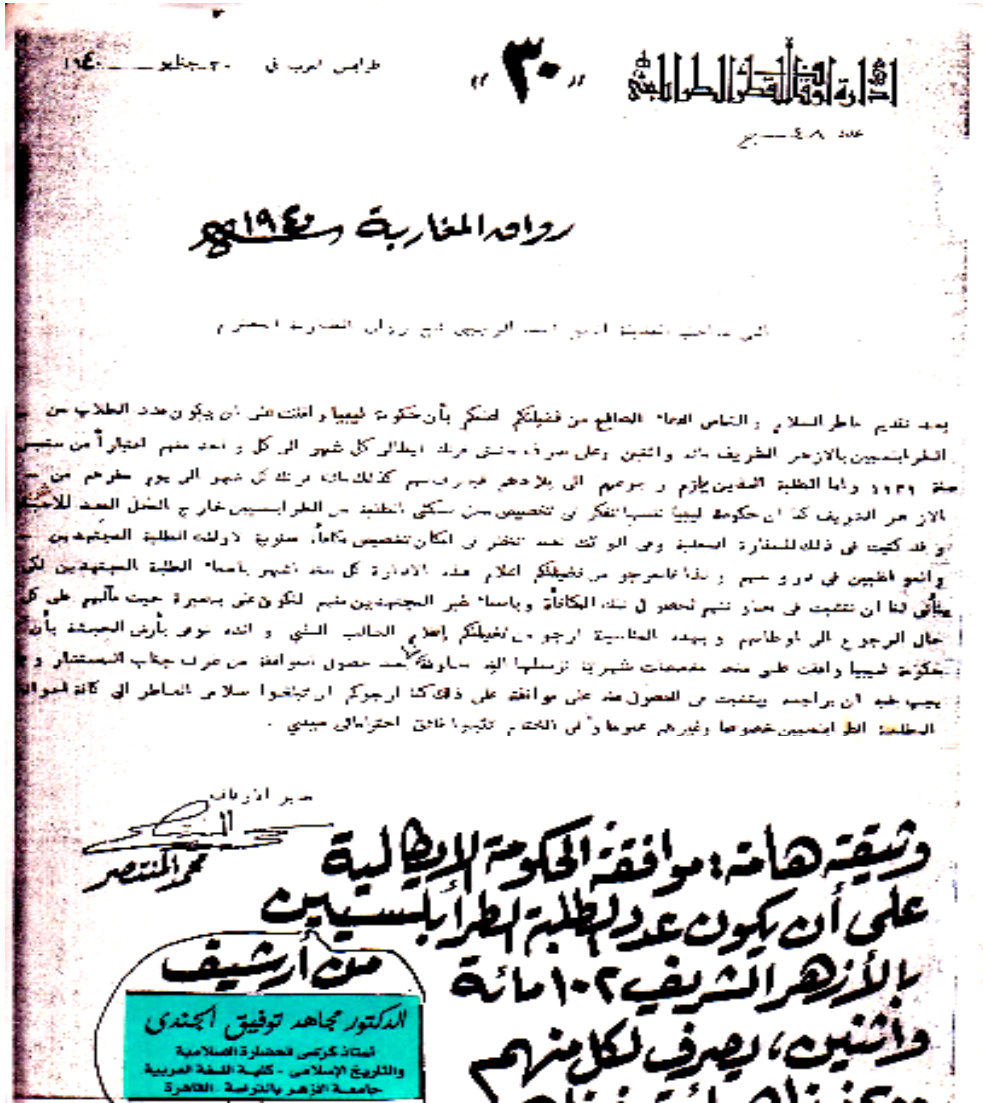 ادارة اوقاف القطر الطرابلسي
« ٣٠ »
طرابلس الغرب في ٢٠ يناير ١٩٤٠
عدد ٤٠٨
رواق المغاربة سنة ١٩٤٠
الى صاحب الفضيلة شيخ رواق المغاربة المحترم
بعد تقديم عاطر السلام و التماس الدعاء الصالح من فضيلتكم اعلمكم بأن حكومة ليبيا وافقت على ان يكون عدد الطلاب من
الطرابلسيين بالازهر الشريف مائة واثنين وعلى صرف مئتي فرنك ايطالي كل شهر الى كل واحد منهم اعتباراً من
سنة ١٩٣٩ واما الطلبة الذين يلزم رجوعهم الى بلادهم فيصرف لهم كذلك مائة فرنك كل شهر الى يوم سفرهم من
الازهر الشريف كما ان حكومة ليبيا نفسها تفكر في تخصيص محل سكنى الطلبة من الطرابلسيين خارج المحل المعد
و قد كتبت في ذلك للسفارة المحلية وفي الوقت نفسه تفكر في امكان تخصيص مكافأة سنوية لاولئك الطلبة المجتهدين
والمواظبين في دروسهم و لذا فالمرجو من فضيلتكم اعلام هذه الادارة كل ستة اشهر باسماء الطلبة المجتهدين لكي
يتأتى لنا ان نتثبت في منهم لحصول تلك المكافأة وباسماء غير المجتهدين منهم لنكون على بصيرة حيث مآلهم على كل
حال الرجوع الى اوطانهم و بهذه المناسبة ارجو من فضيلتكم إعلام الطالب الذي والده توفى بأرض الحبشة بأن
حكومة ليبيا وافقت على منحه مخصصات شهرية نرسلها اليه بعد حصول الموافقة من طرف جناب المستشار و
يجب عليه ان يراجعه ويتثبت في الحصول منه على موافقته على ذلك كما ارجوكم ان تبلغوا سلامي العاطر الى كافة
الطلبة الطرابلسيين خصوصا وغيرهم عموما و في الختام تقبلوا فائق احتراماتي سيدي .
مدير الاوقاف
محمد المنتصر
وثيقة هامة: موافقة الحكومة الإيطالية
على أن يكون عدد الطلبة الطرابلسيين
بالأزهر الشريف ١٠٢ مائة
واثنين، يصرف لكل منهم
من أرشيف
الدكتور مجاهد توفيق الجندى
أستاذ كرسى الحضارة الإسلامية
والتاريخ الإسلامى - كلية اللغة العربية
جامعة الأزهر بالدراسة - القاهرة